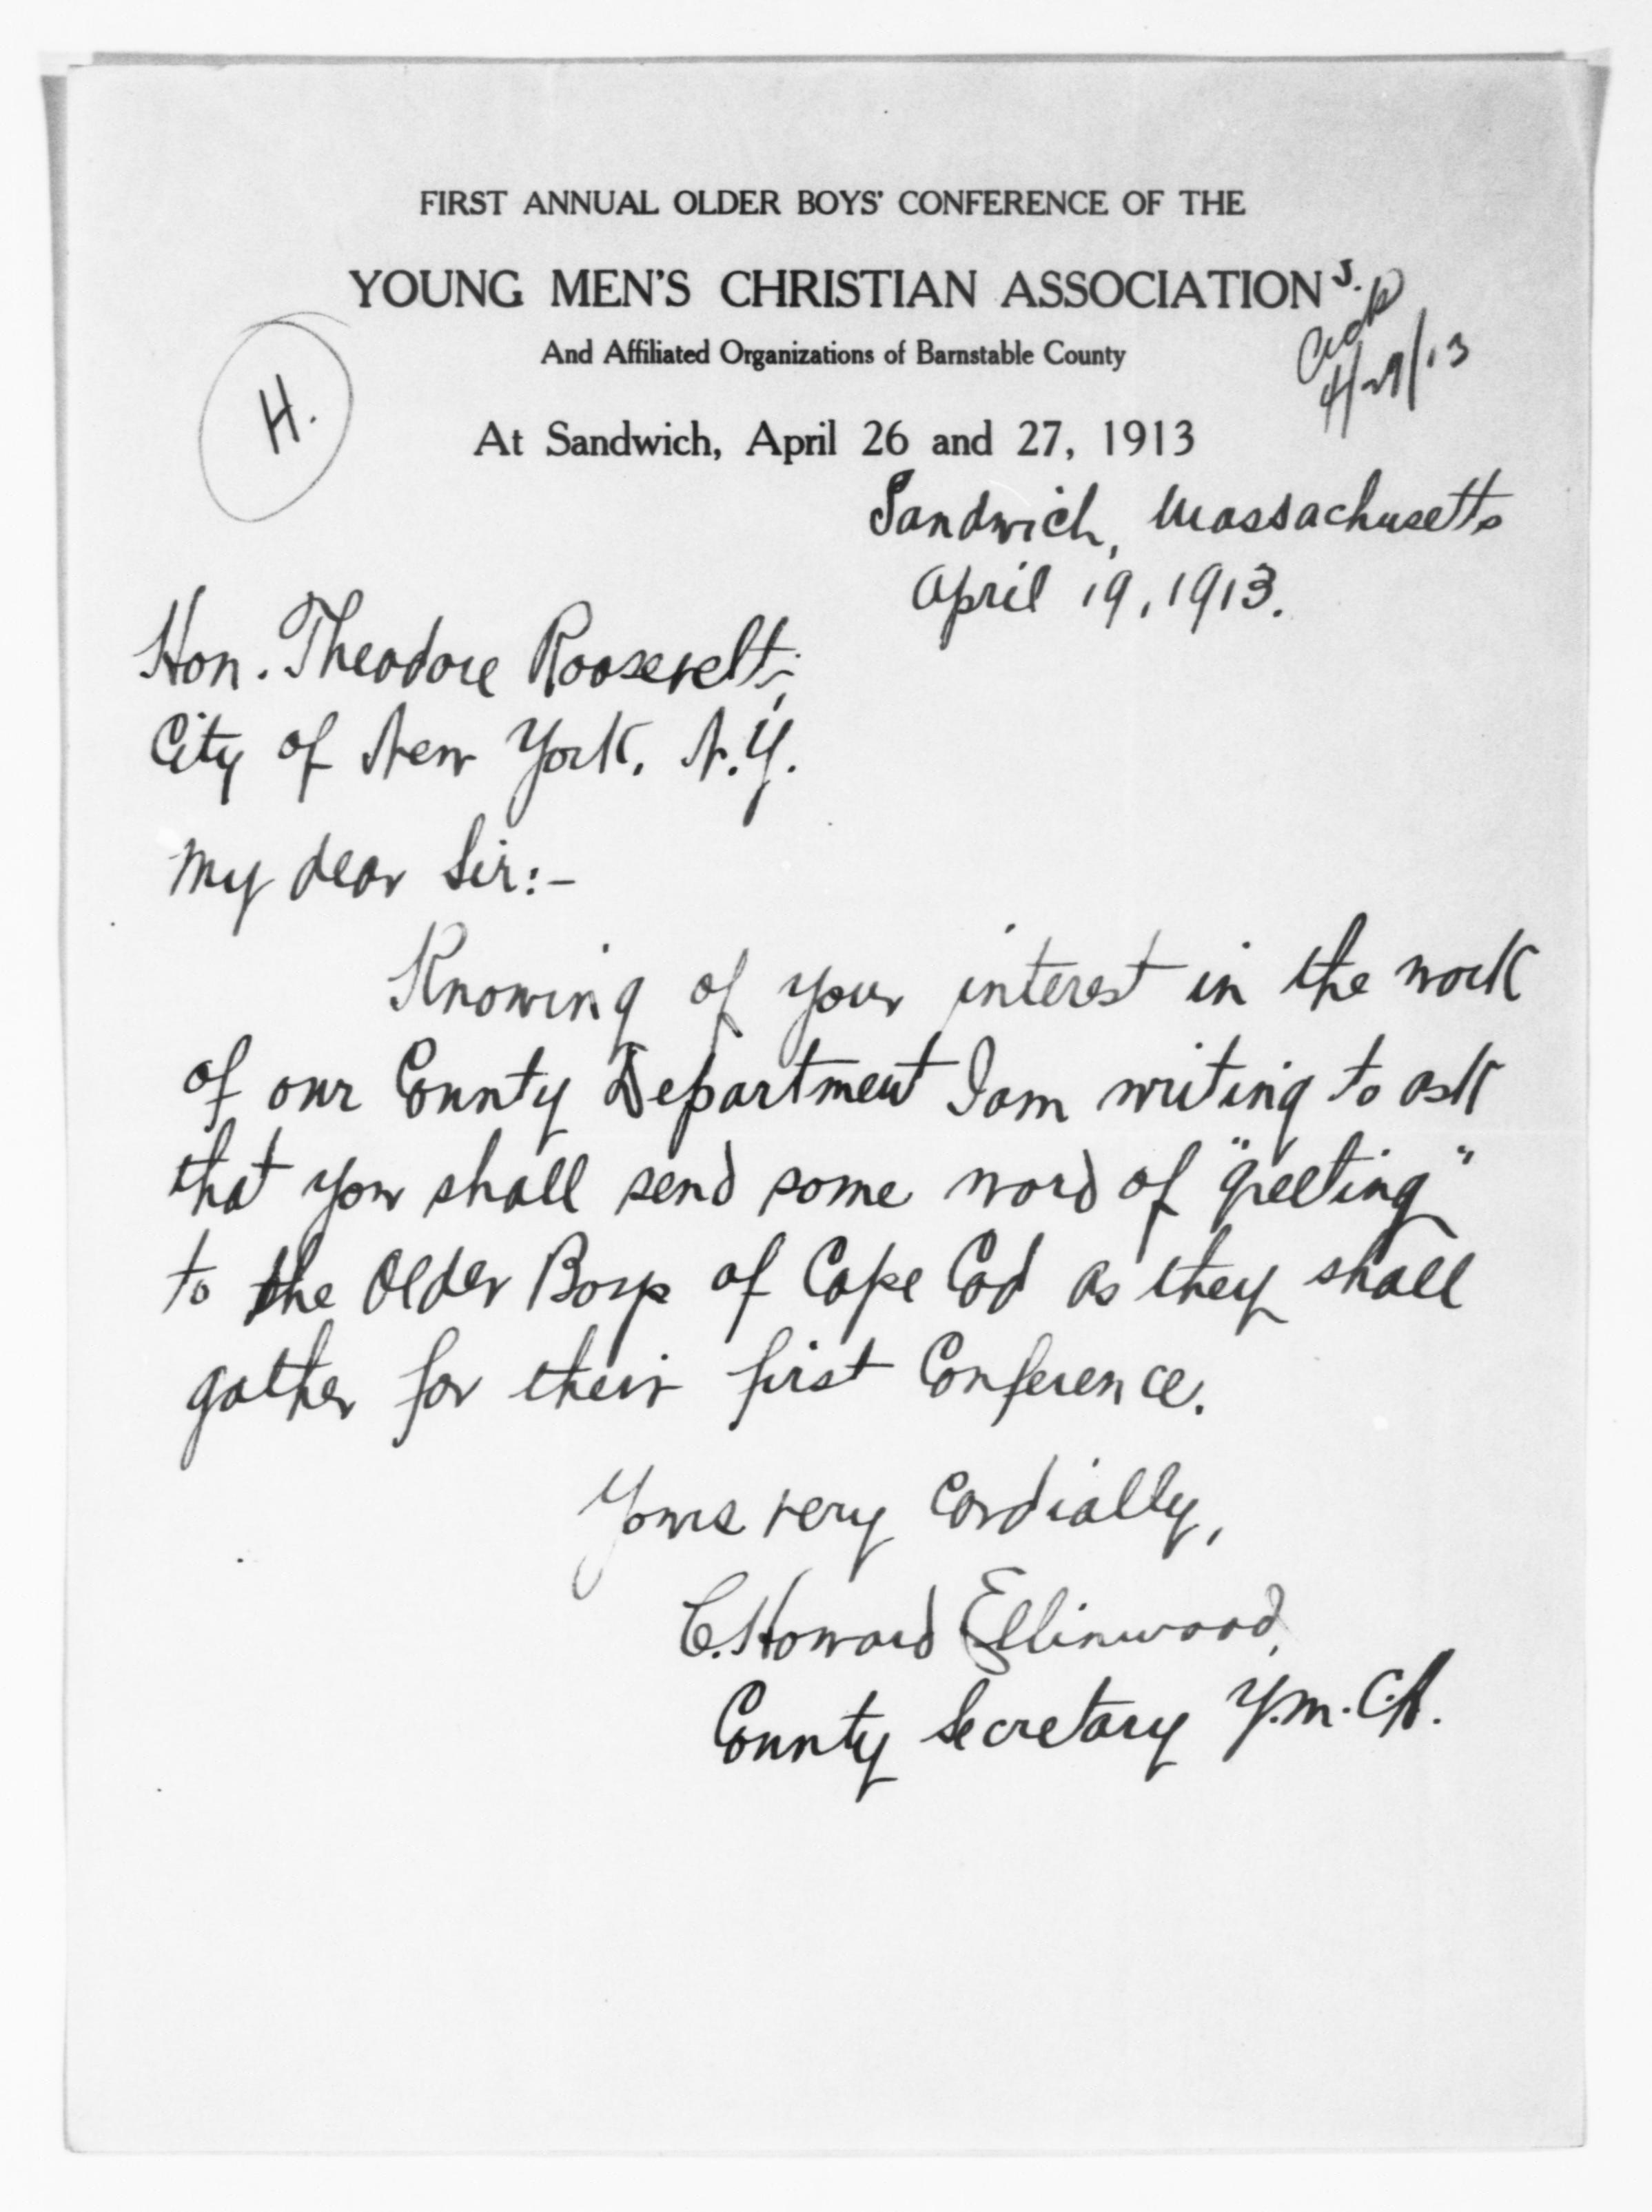 FIRST ANNUAL OLDER BOYS' CONFERENCE OF THE
YOUNG MEN'S CHRISTIAN ASSOCIATIONs.
And Affiliated Organizations of Barnstable County
At Sandwich, April 26 and 27, 1913
H.
Ack'd
4/29/13
Sandwich, Massachusetts
April 19, 1913.
Hon. Theodore Roosevelt,
City of New York, N.Y.
My dear Sir:-
Knowing of your interest in the work
of our County Department I am writing to ask
that you shall send some word of "greeting"
to the Older Boys of Cape Cod as they shall
gather for their first Conference.
Yours very cordially,
C. Howard Ellinwood,
County Secretary Y.M.C.A.